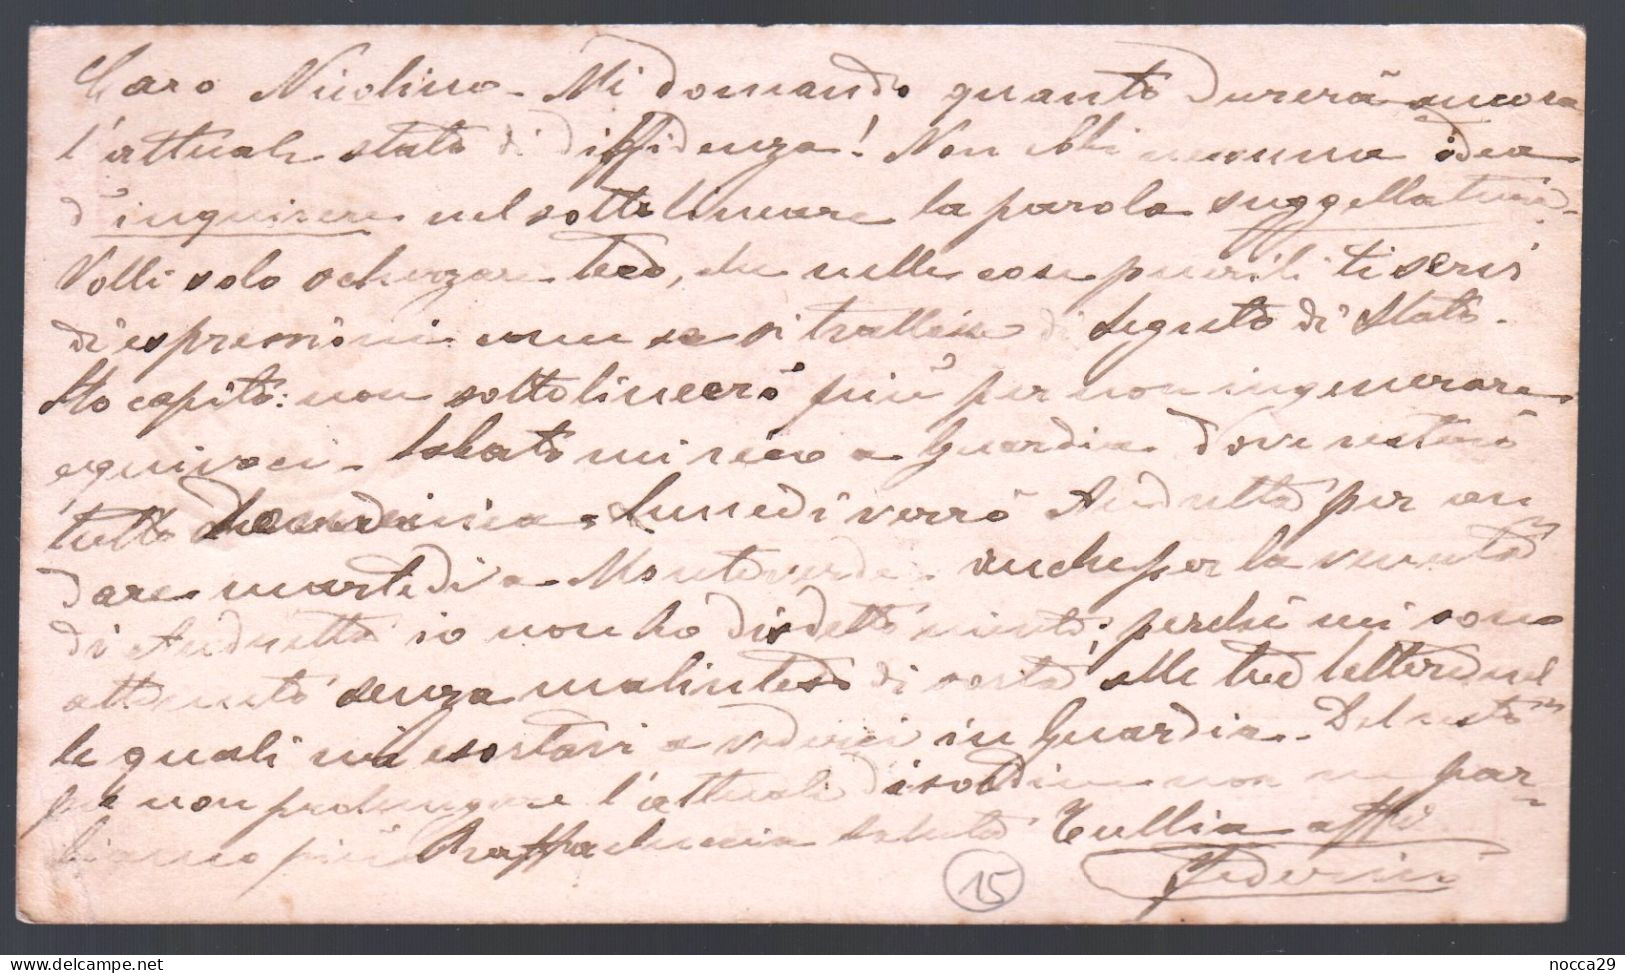 Caro Nicolino - Mi domando quanto durerà ancora
l'attuale stato di diffidenza! Non ebbi nessuna idea
d'inquisire nel sottolineare la parola suggellature.
Volli solo scherzare teco, che nelle cose puerili ti servi
di espressioni come se si trattasse di segreto di Stato.
Ho capito: non sottolineerò più per non ingenerare
equivoci - Sabato mi reco a Guardia dove resterò
tutto domenica. Lunedì verrò Andretta per an
dare martedì a Monteverde. anche per la venuta
di Andretta io non ho disdetto niente; perchè mi sono
attenuto senza malinteso di sorta alle tue lettere nel
le quali mi esortavi a vederci in Guardia. Del resto
per non prolungare l'attuale non ne par-
liamo più saluta Tullia aff
Federico
15
nocca29